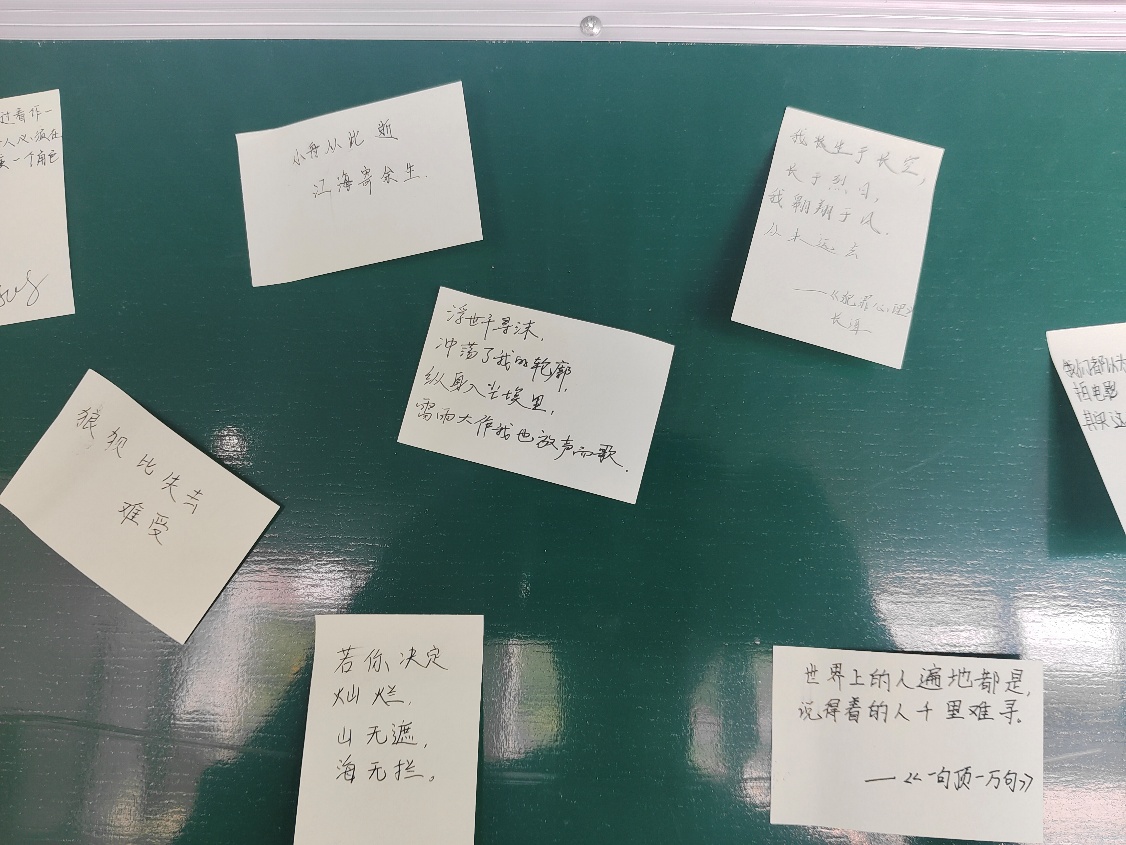 过看作一
人必须在
一个角色
小舟从此逝
江海寄余生.
我诞生于长空,
长于烈日,
我翱翔于风.
从未远去
——《犯罪心理》
长谭
浮世千寻沫,
冲荡了我的轮廓,
纵身入尘埃里,
雷雨大作我也放声而歌.
我们都以为
拍电影
其实这
狼狈比失去
难受
若你决定
灿烂,
山无遮,
海无拦。
世界上的人遍地都是,
说得着的人千里难寻。
——《一句顶一万句》